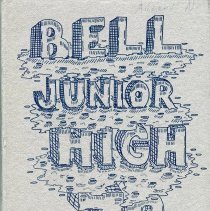 BELL
JUNIOR
HIGH